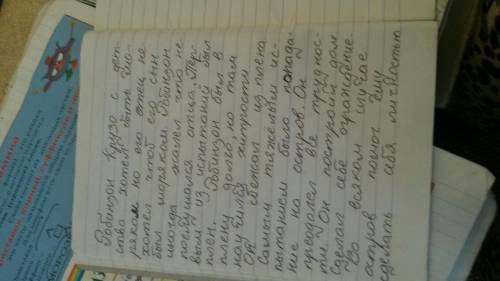 Робинзон Крузо с дет-
ства хотел быть мо-
ряком но его отец не
хотел чтоб его сын
был моряком. Робинзон
иногда жалел что не
послушался отца. Пер-
вым из испытаний был
плен. Робинзон был в
плену долго, но там
научился хитрости
Он сбежал из плена
самым тяжёлым ис-
пытанием было попада-
ние на остров. Он
преодолел все труднос-
ти. Он построил дом
сделал себе ограждение.
Во всяком случае
остров помог ему
сделать себя личностью